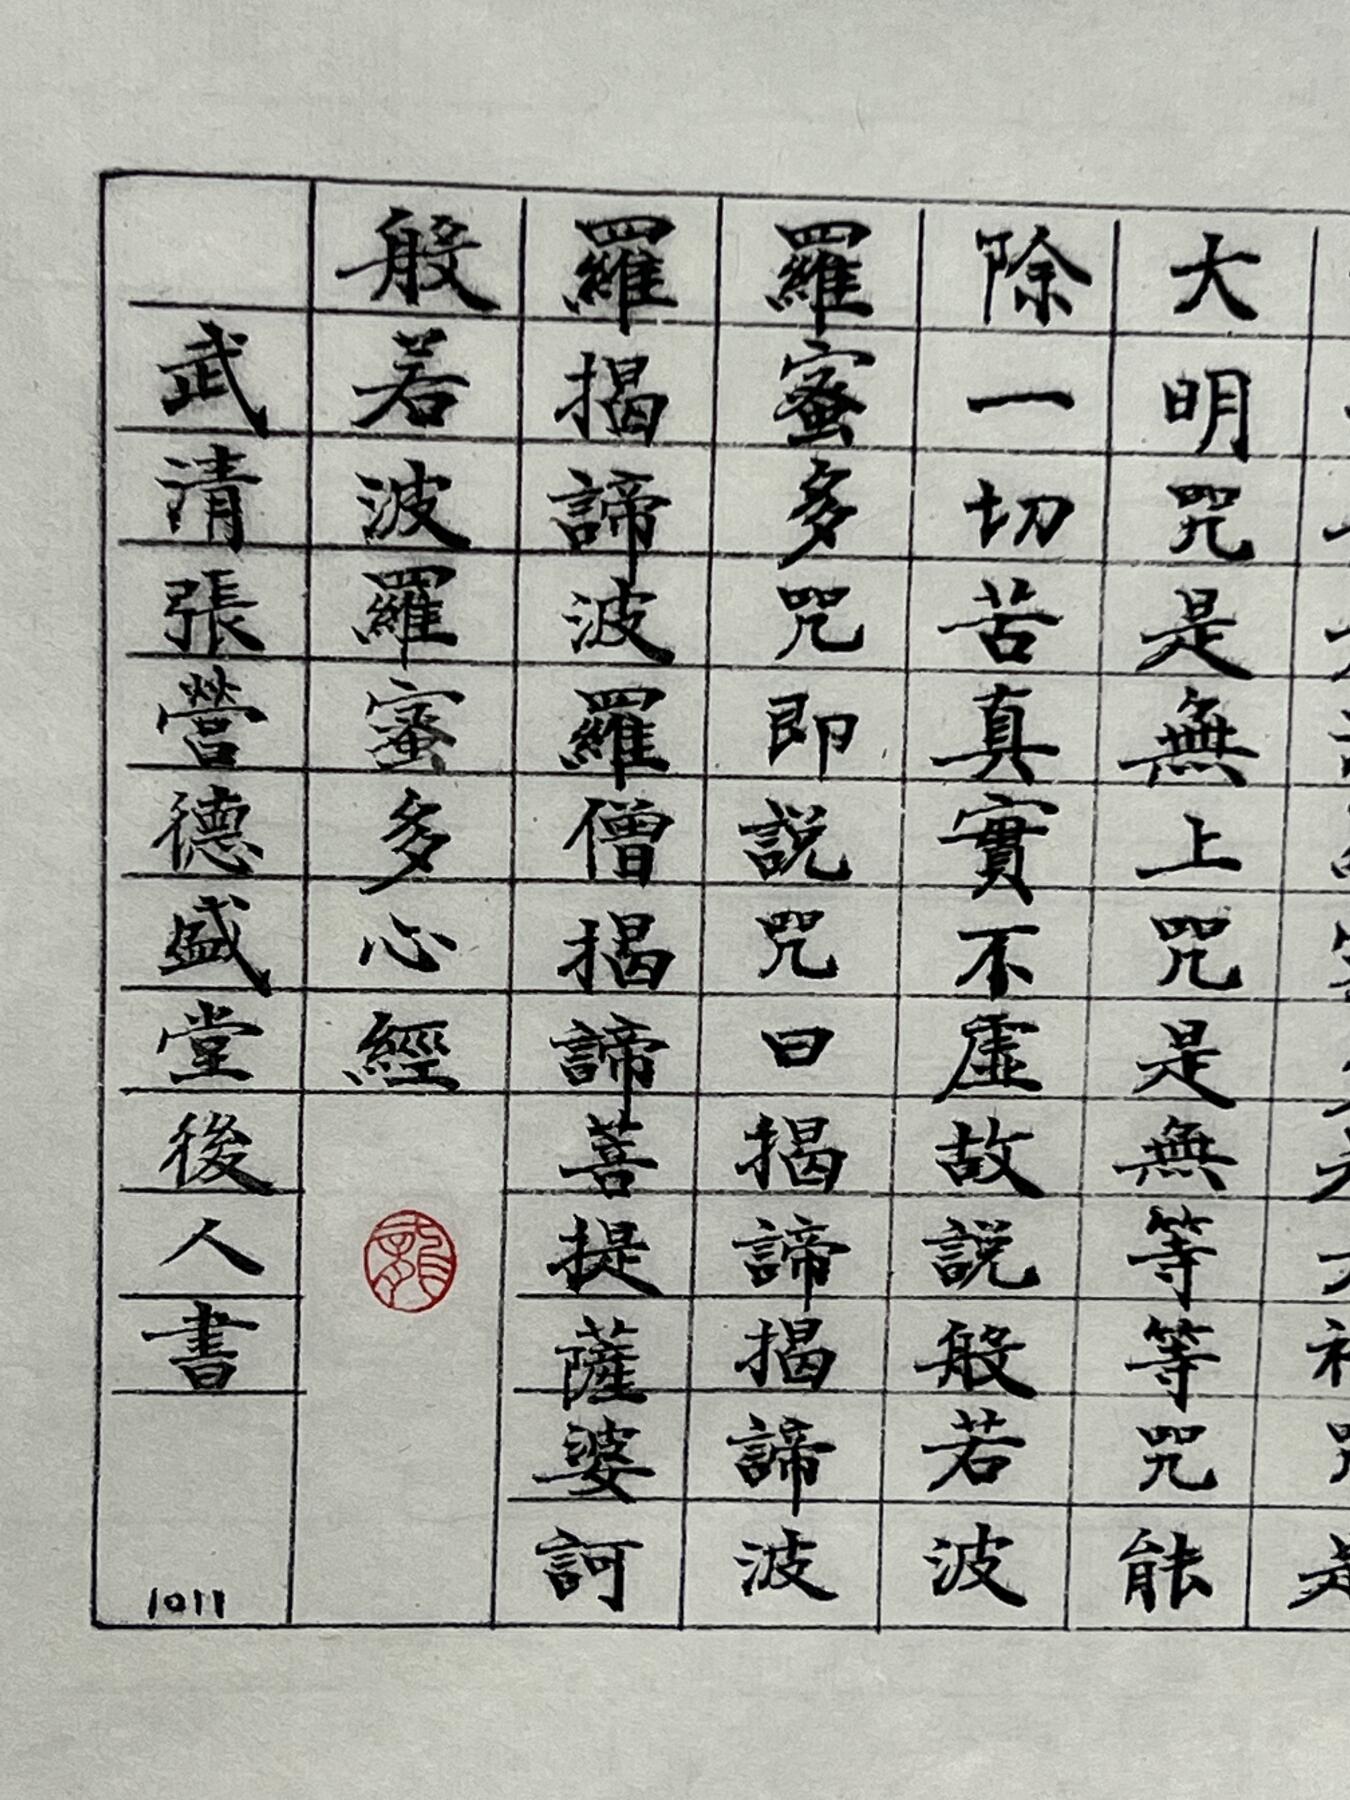 大明咒是無上咒是無等等咒能
除一切苦真實不虛故説般若波
羅蜜多咒即説咒曰揭諦揭諦波
羅揭諦波羅僧揭諦菩提薩婆訶
般若波羅蜜多心經
龍
武清張營德盛堂後人書
1011